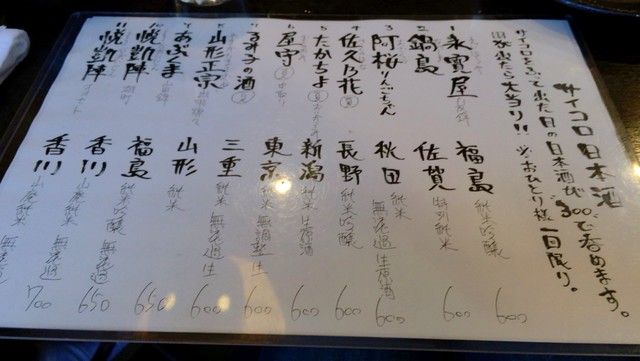 サイコロ日本酒
サイコロをふって出た目の日本酒が300で呑めます。
出たら大当り!! ※おひとり様一回限り。
1 永寳屋 福島 純米吟醸 600
2 鍋島 佐賀 特別純米 600
3 阿櫻 りんごちゃん 秋田 純米 無濾過生原酒 600
4 佐久乃花 長野 純米吟醸 600
5 たかちよ 新潟 純米生原酒 600
6 屋守 東京 純米 無調整生 600
7 るみ子の酒 三重 純米 無濾過生 600
山形正宗 山形 純米 600
あぶくま 福島 純米吟醸 650
悦凱陣 香川 山廃純米 無濾過 650
11 悦凱陣 香川 山廃純米 700